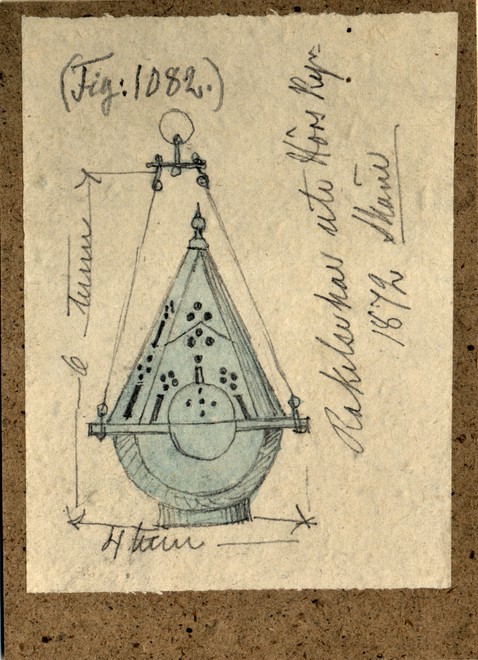 (Fig: 1082.)
6 tum
4 tum
Rökelsekar uti Hörs Kyr-
1872 Skåne